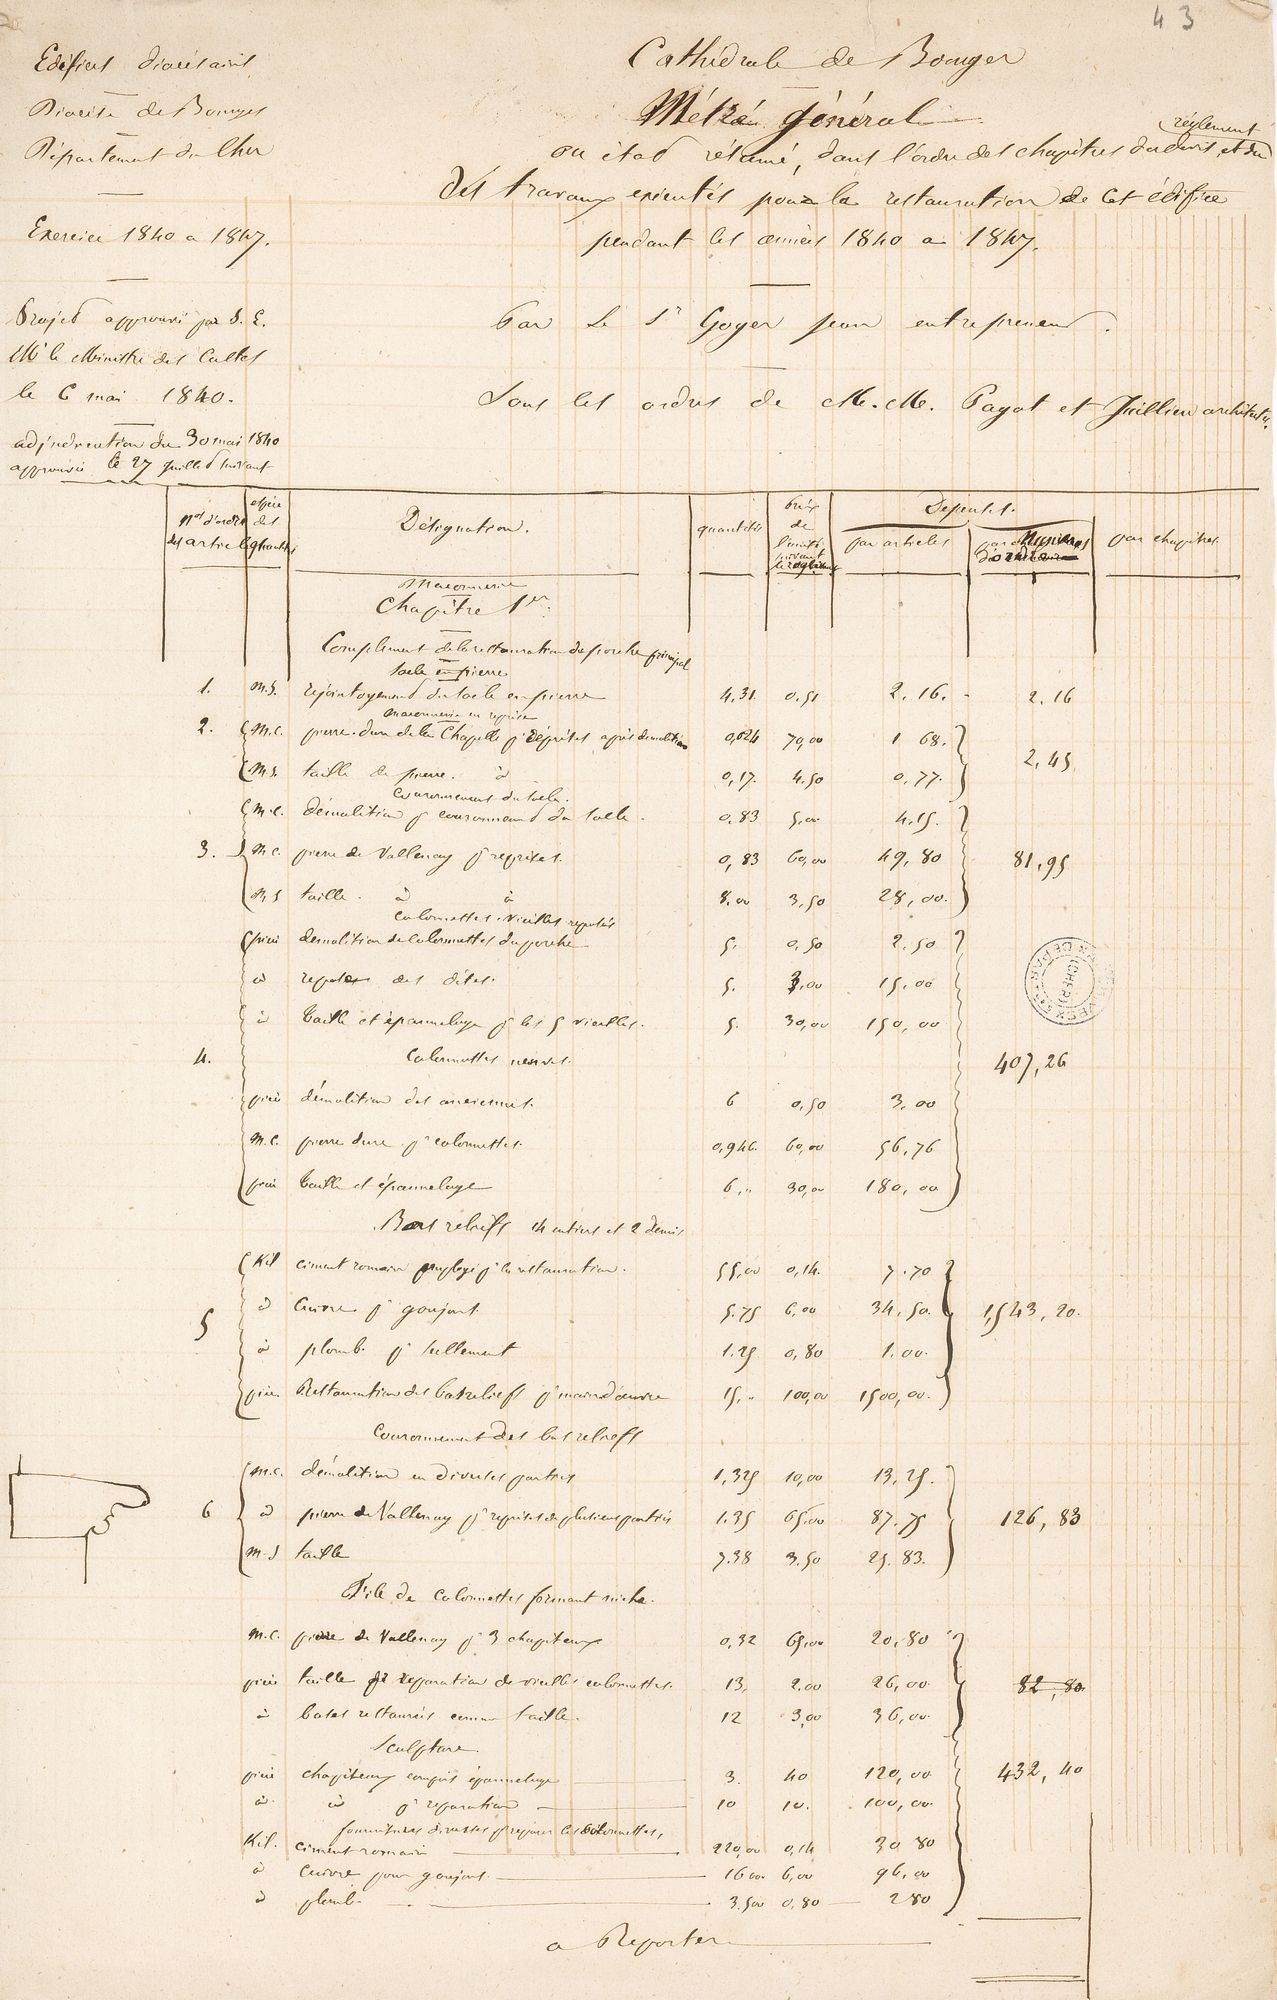 43
Edifices diocésains
Diocèse de Bourges
Département du Cher
Exercice 1840 a 1847.
Projet approuvé par S. E.
Mr le Ministre des Cultes
le 6 mai 1840.
adjudication du 30 mai 1840
approuvée le 27 juillet suivant
Cathédrale de Bourges
Métré général
ou état résumé, dans l'ordre des chapitres du devis et du règlement
des travaux exécutés pour la restauration de cet édifice
pendant les années 1840 a 1847.
Par le Sr Goyer jean entrepreneur.
Sous les ordres de M.M. Pagot et Juillien architectes.
nos d'ordre des articles espèce des quantités Désignation. quantités Prix de l'unité suivant le règlement Depenses. par articles par numéros d'ordre par chapitres
Maconnerie
Chapitre 1er.
Complement de la restauration du porche principal
socle en pierre
1. M.S. rejointoyement du socle en pierre 4,31 0,51 2.16. - 2,16
maconnerie en reprise
2. M.C. pierre dure de la Chapelle pr reprises après démolition 0,024 70,00 1 68.
M.S. taille de pierre. à 0,17. 4.50 0,77. 2,45
Couronnement du socle.
M.C. démolition pr couronnement du socle. 0,83 5,00 4.15.
3. M.C. pierre de Vallenay pr reprises. 0,83 60,00 49,80 81,95
M.S taille. à à 8.00 3,50 28,00.
colonnettes vieilles reposées
pièce démolition de colonnettes du porche 5. 0,50 2.50
à reposer des dites. 5. 3,00 15,00
à Taille et épannelage pr les 5 vieilles. 5. 30,00 150,00
4. Colonnettes neuves. 407,26
pièce démolition des anciennes. 6 0,50 3,00
M.C. pierre dure pr colonnettes. 0,946. 60,00 56,76
pièce Taille et épannelage 6,.. 30,00 180,00
Bas reliefs 14 entiers et 2 demis
Kil ciment romain employé pr la restauration. 55,00 0,14. 7.70
5 à Cuivre pr goujons. 5.75 6,00 34,50. 1,543,20.
à plomb. pr scellement 1.25 0,80 1.00.
pièce Restauration des bas reliefs pr main d'œuvre 15,.. 100,00 1500,00.
Couronnement des bas reliefs
M.C. démolition en diverses parties 1,325 10,00 13,25.
6 à pierre de Vallenay pr reprises de plusieurs parties 1.35 65,00 87.75 126,83
M.S taille 7.38 3.50 25.83.
Pile de colonnettes formant niche.
M.C. pierre de Vallenay pr 3 chapiteaux 0,32 65,00 20,80
pièce taille pr réparation de vieilles colonnettes. 13, 2.00 26,00 82,80
à bases restaurées comme taille. 12 3,00 36,00.
Sculpture
pièce chapiteaux compris épannelage 3. 40 120,00 432,40
à à pr réparation 10 10. 100,00.
fournitures diverses pr reposer les colonnettes,
Kil. ciment romain 220,00 0,14 30 80
à Cuivre pour goujons. 16 00. 6,00 96,00
à plomb 3.500 0,80 2 80
a Reporter